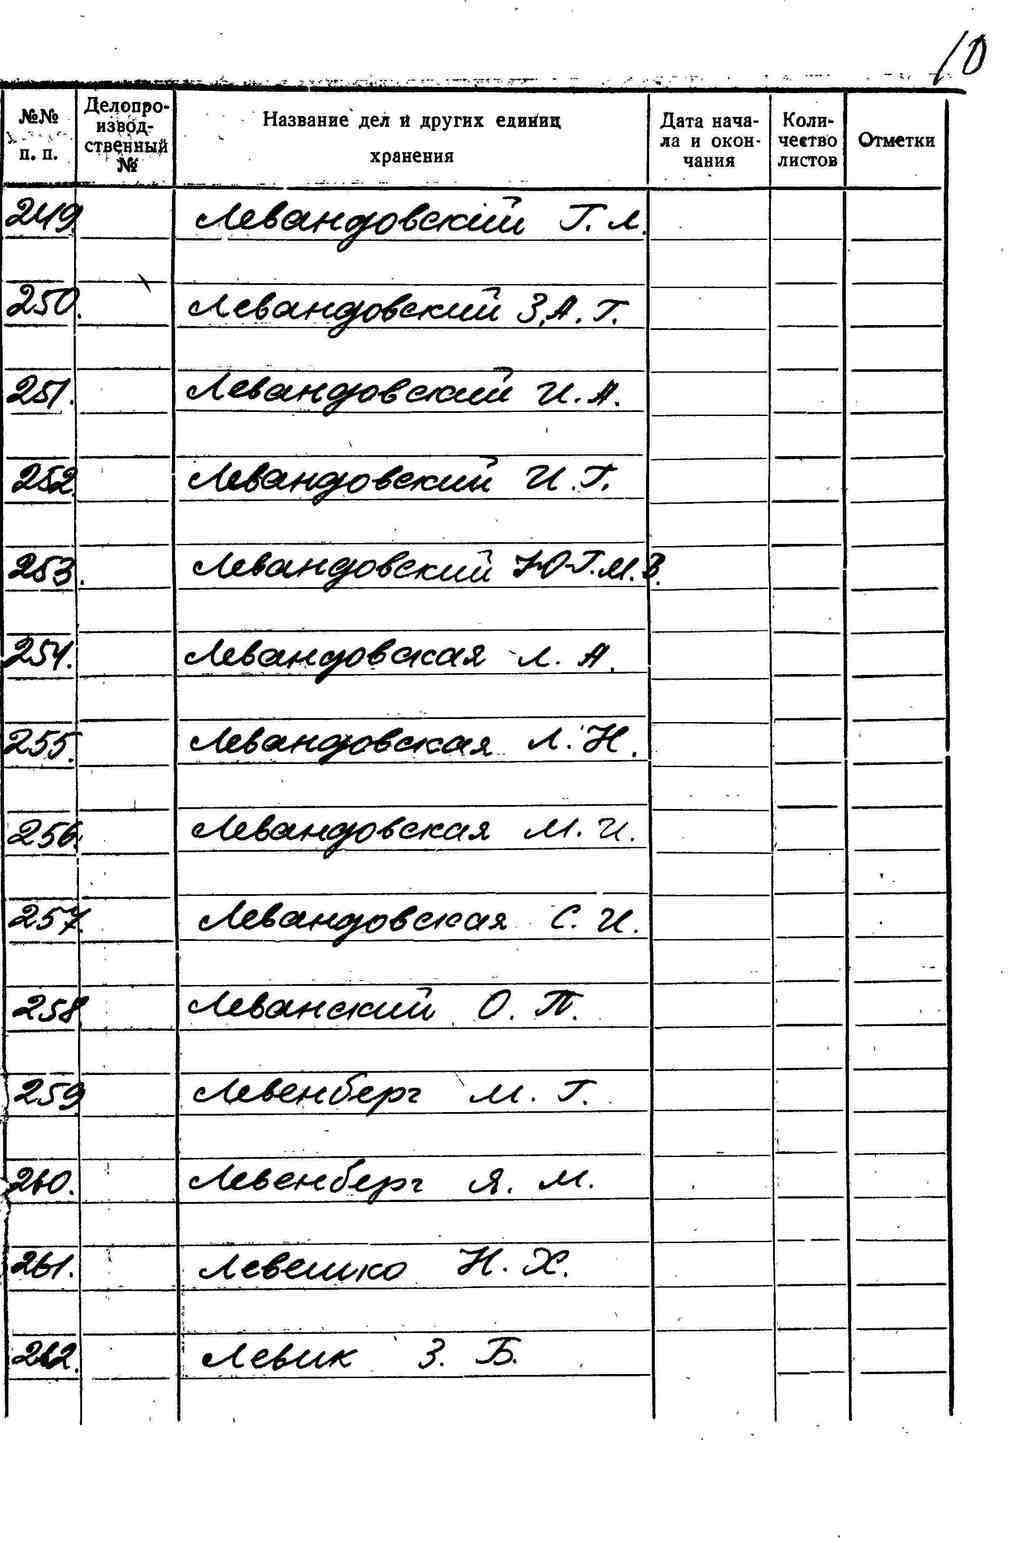 10
№№ п. п. Делопроизводственный № Название дел и других единиц хранения Дата начала и окончания Количество листов Отметки
249. Левандовский Г. Л.
250. Левандовский З. А. Г.
251. Левандовский И. А.
252. Левандовский И. Г.
253. Левандовский Ю-Г. М. В.
254. Левандовская Л. А.
255. Левандовская Л. Н.
256. Левандовская М. И.
257. Левандовская С. И.
258 Леванский О. П.
259 Левенберг М. Г.
260. Левенберг Я. М.
261. Левешко Н. Х.
262. Левик З. Б.